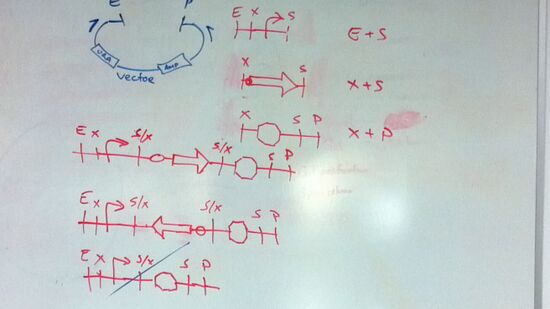 E P
URA Amp
vector
E X S E + S
X S X + S
X S P X + P
E X S/X S/X S P
E X S/X S/X S P
E X S/X S P